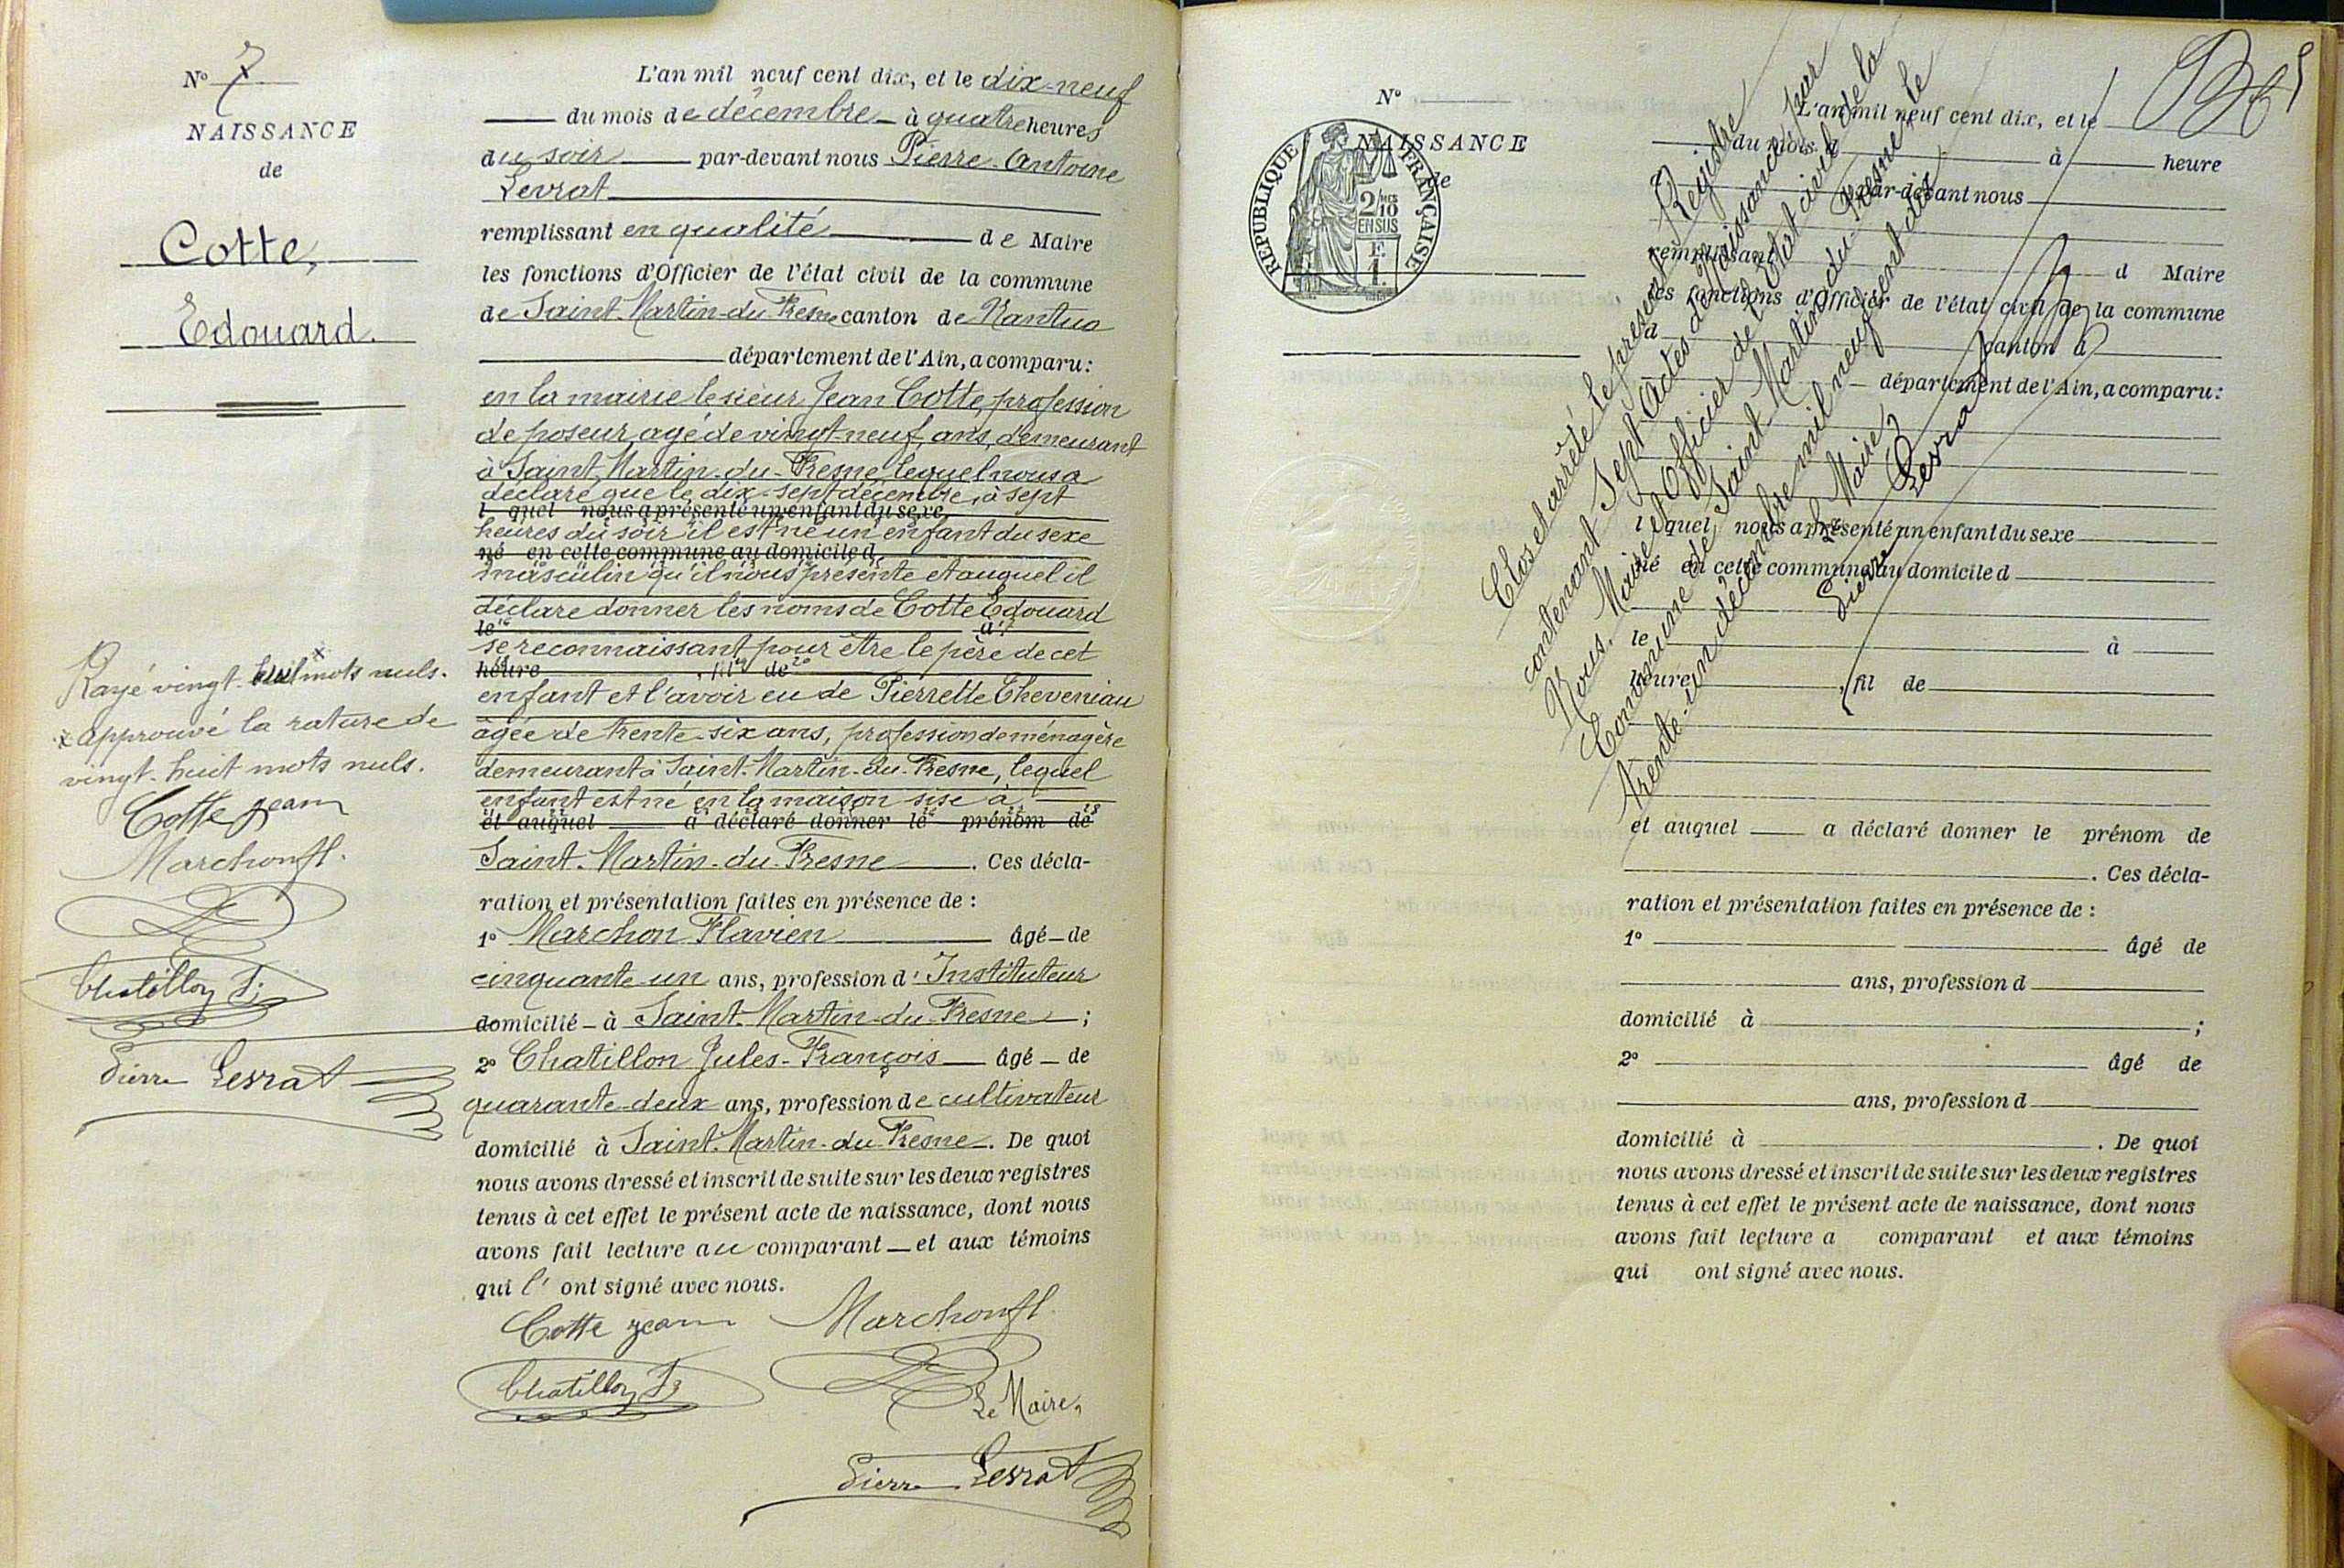 N° 7
NAISSANCE
de
Cotte,
Edouard.
L'an mil neuf cent dix, et le dix-neuf
du mois de décembre à quatre heures
du soir par-devant nous Pierre-Antoine
Levrat
remplissant en qualité de Maire
les fonctions d'Officier de l'état civil de la commune
de Saint-Martin-du-Fresne canton de Nantua
département de l'Ain, a comparu:
en la mairie le sieur Jean Cotte, profession
de poseur, agé de vingt-neuf, ans, demeurant
à Saint-Martin-du-Fresne, lequel nous a
déclaré que le dix-sept décembre, à sept
l quel nous a présenté un enfant du sexe
heures du soir il est né un enfant du sexe
né en cette commune au domicile d
masculin qu'il nous présente et auquel il
déclare donner les noms de Cotte Edouard
le à
se reconnaissant pour être le père de cet
heure , fil de
enfant et l'avoir eu de Pierrette Cheveniau
âgée de trente-six ans, profession de ménagère
demeurant à Saint-Martin-du-Fresne, lequel
enfant est né en la maison sise à
et auquel a déclaré donner le prénom de
Saint-Martin-du-Fresne. Ces décla-
ration et présentation faites en présence de :
1° Marchon Flavien âgé de
cinquante-un ans, profession d'Instituteur
domicilié à Saint-Martin-du-Fresne ;
2° Chatillon Jules-François âgé de
quarante-deux ans, profession de cultivateur
domicilié à Saint-Martin-du-Fresne. De quoi
nous avons dressé et inscrit de suite sur les deux registres
tenus à cet effet le présent acte de naissance, dont nous
avons fait lecture au comparant et aux témoins
qui l' ont signé avec nous.
Cotte jean Marchon fl.
Chatillon J.
Le Maire,
Pierre Levrat
Rayé vingt-huit mots nuls.
x approuvé la rature de
vingt-huit mots nuls.
Cotte jean
Marchon fl.
Chatillon J.
Pierre Levrat
N°
NAISSANCE
de
RÉPUBLIQUE FRANÇAISE
2/10
EN SUS
L'an mil neuf cent dix, et le
du mois d à heure
d par-devant nous
remplissant d Maire
les fonctions d'Officier de l'état civil de la commune
d canton d
département de l'Ain, a comparu:
l quel nous a présenté un enfant du sexe
né en cette commune au domicile d
le à
heure , fil de
et auquel a déclaré donner le prénom de
. Ces décla-
ration et présentation faites en présence de :
1° âgé de
ans, profession d
domicilié à ;
2° âgé de
ans, profession d
domicilié à . De quoi
nous avons dressé et inscrit de suite sur les deux registres
tenus à cet effet le présent acte de naissance, dont nous
avons fait lecture a comparant et aux témoins
qui ont signé avec nous.
Clos et arrêté le présent Registre
contenant Sept Actes de Naissance par
Nous, Maire et Officier de l'Etat civil de la
Commune de Saint-Martin-du-Fresne, le
trente-un décembre mil neuf cent dix.
Le Maire,
Pierre Levrat